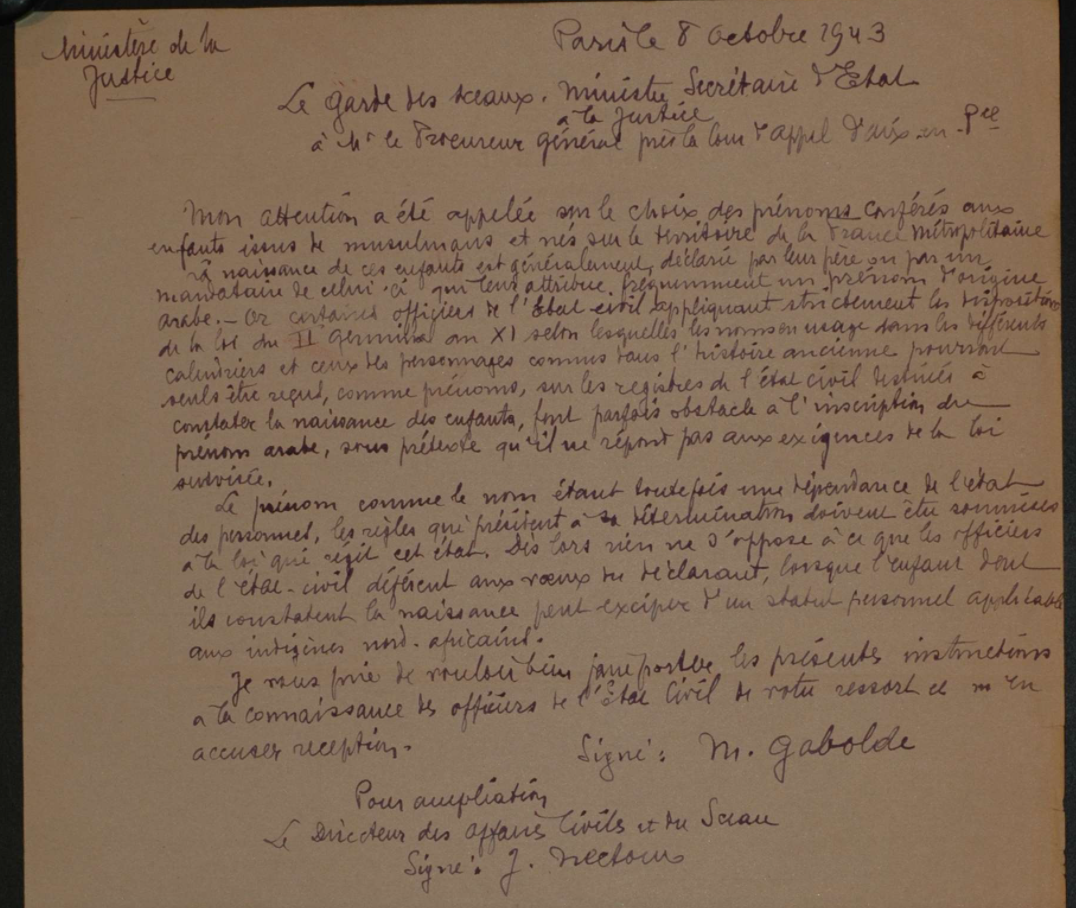 Ministère de la
Justice
Paris le 8 Octobre 1943
Le Garde des Sceaux. Ministre Secrétaire d'Etat
à la Justice
à Mr le Procureur général près la Cour d'appel d'Aix-en-Pce
Mon attention a été appelée sur le choix des prénoms conférés aux
enfants issus de musulmans et nés sur le territoire de la France Métropolitaine
la naissance de ces enfants est généralement déclarée par leur père ou par un
mandataire de celui-ci qui leur attribue fréquemment un prénom d'origine
arabe. - Or certains officiers de l'Etat civil appliquant strictement les dispositions
de la loi du II Germinal an XI selon lesquelles les noms en usage dans les différents
calendriers et ceux des personnages connus dans l'histoire ancienne pourront
seuls être reçus, comme prénoms, sur les registres de l'état civil destinés à
constater la naissance des enfants, font parfois obstacle à l'inscription du
prénom arabe, sous prétexte qu'il ne répond pas aux exigences de la loi
susvisée.
Le prénom comme le nom étant toutefois une dépendance de l'état
des personnes, les règles qui président à sa détermination doivent être soumises
à la loi qui régit cet état. Dès lors rien ne s'oppose à ce que les officiers
de l'état-civil défèrent aux vœux du déclarant, lorsque l'enfant dont
ils constatent la naissance peut exciper d'un statut personnel applicable
aux indigènes nord-africains.
Je vous prie de vouloir bien porter les présentes instructions
à la connaissance des officiers de l'Etat Civil de votre ressort et m'en
accuser reception.
Signé: M. Gabolde
Pour ampliation
Le Directeur des Affaires Civiles et du Sceau
Signé: J. Nectoux